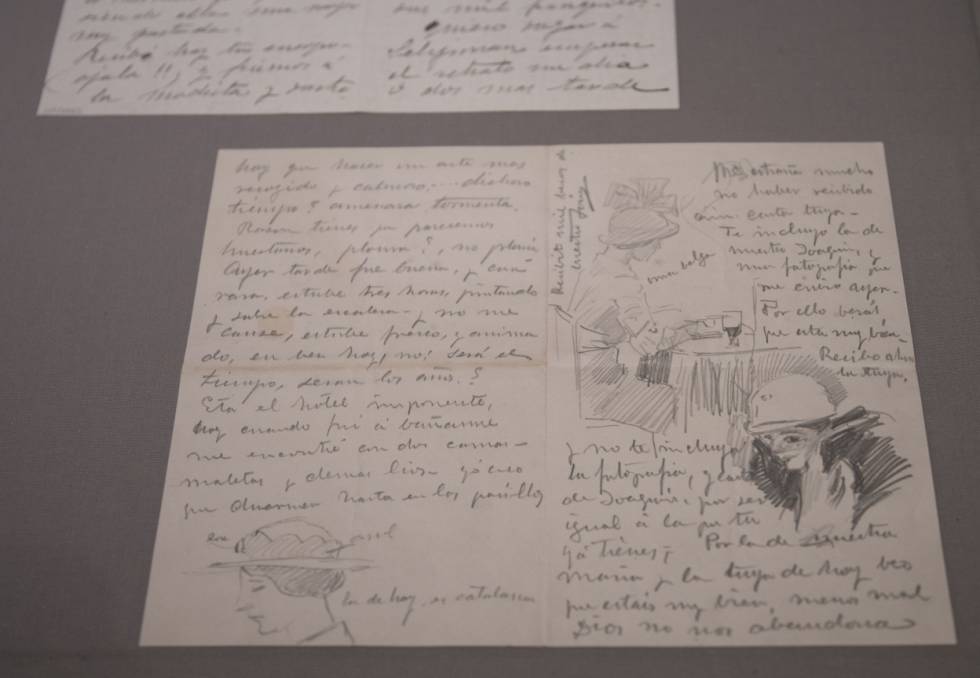 muy gastada.
Recibo hoy tu
ojala!! y fuimos á
la y
sus mil
quiero llegar á
empezar
el retrato un dia
ó dos mas tarde
hay que hacer un arte mas
recogido y calmoso,... dichoso
tiempo? amenaza tormenta.
Razon tienes ya parecemos
huertanos, plourá?, no plourá
Ayer tarde fue buena, y
estube tres horas, pintando
y subí la escalera y no me
canse, estube fresco, y anima
do, en ben hoy, no! será el
tiempo, seran los años?
Esta el hotel imponente,
hoy cuando fui á bañarme
me encontré con dos camas
maletas y demas lios yá creo
que duermen hasta en los pasillos
azul
la de hoy, es catalana
Recibid mil besos de
vuestro
una belga
Me extraña mucho
no haber recibido
aun carta tuya-
Te incluyo la de
nuestro Joaquin, y
una fotografia que
me envio ayer.
Por ello verás
que está muy bien
Recibo ahora
la tuya,
y no te incluyo
la fotografia, y
de Joaquin, por ser
igual á la que tu
yá tienes,
Por la de nuestra
Maria y la tuya de hoy veo
que estais muy bien, menos mal
Dios no nos abandona